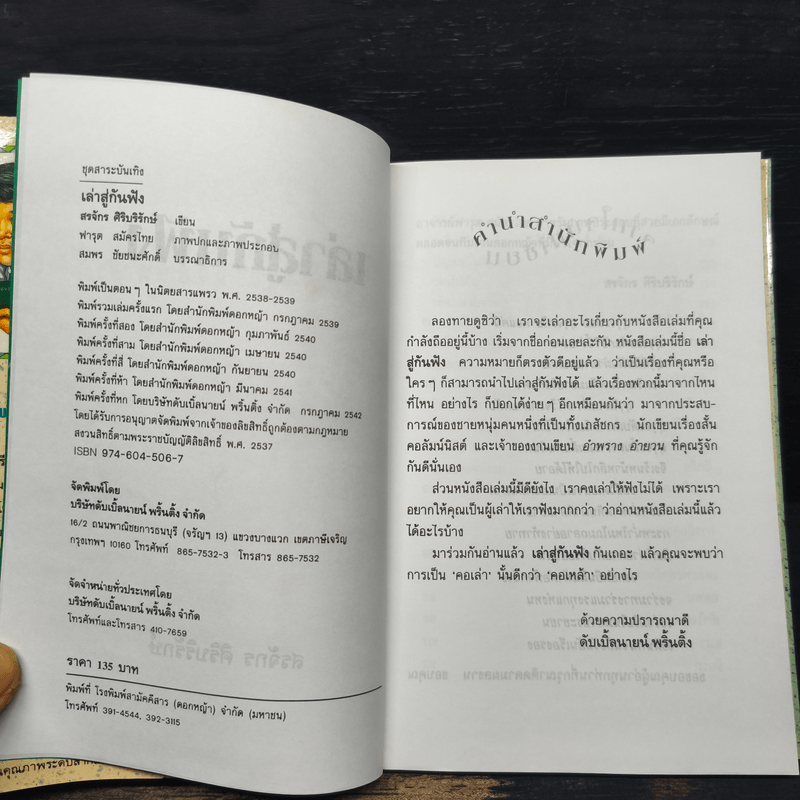 ชุดสาระบันเทิง
เล่าสู่กันฟัง
สรจักร ศิริบริรักษ์ เขียน
ฟารุต สมัครไทย ภาพปกและภาพประกอบ
สมพร ชัยชนะศักดิ์ บรรณาธิการ
พิมพ์เป็นตอนๆ ในนิตยสารแพรว พ.ศ. 2538-2539
พิมพ์รวมเล่มครั้งแรก โดยสำนักพิมพ์ดอกหญ้า กรกฎาคม 2539
พิมพ์ครั้งที่สอง โดยสำนักพิมพ์ดอกหญ้า กุมภาพันธ์ 2540
พิมพ์ครั้งที่สาม โดยสำนักพิมพ์ดอกหญ้า เมษายน 2540
พิมพ์ครั้งที่สี่ โดยสำนักพิมพ์ดอกหญ้า กันยายน 2540
พิมพ์ครั้งที่ห้า โดยสำนักพิมพ์ดอกหญ้า มีนาคม 2541
พิมพ์ครั้งที่หก โดยบริษัทดับเบิ้ลนายน์ พริ้นติ้ง จำกัด กรกฎาคม 2542
โดยได้รับการอนุญาตจัดพิมพ์จากเจ้าของลิขสิทธิ์ถูกต้องตามกฎหมาย
สงวนสิทธิ์ตามพระราชบัญญัติลิขสิทธิ์ พ.ศ. 2537
ISBN 974-604-506-7
จัดพิมพ์โดย
บริษัทดับเบิ้ลนายน์ พริ้นติ้ง จำกัด
16/2 ถนนพาณิชยการธนบุรี (จรัญฯ 13) แขวงบางแวก เขตภาษีเจริญ
กรุงเทพฯ 10160 โทรศัพท์ 865-7532-3 โทรสาร 865-7532
จัดจำหน่ายทั่วประเทศโดย
บริษัทดับเบิ้ลนายน์ พริ้นติ้ง จำกัด
โทรศัพท์และโทรสาร 410-7659
ราคา 135 บาท
พิมพ์ที่ โรงพิมพ์สามัคคีสาร (ดอกหญ้า) จำกัด (มหาชน)
โทรศัพท์ 391-4544, 392-3115
คำนำสำนักพิมพ์
ลองทายดูซิว่า เราจะเล่าอะไรเกี่ยวกับหนังสือเล่มที่คุณ
กำลังถืออยู่นี้บ้าง เริ่มจากชื่อก่อนเลยละกัน หนังสือเล่มนี้ชื่อ เล่า
สู่กันฟัง ความหมายก็ตรงตัวดีอยู่แล้ว ว่าเป็นเรื่องที่คุณหรือ
ใครๆ ก็สามารถนำไปเล่าสู่กันฟังได้ แล้วเรื่องพวกนี้มาจากไหน
ที่ไหน อย่างไร ก็บอกได้ง่ายๆ อีกเหมือนกันว่า มาจากประสบ-
การณ์ของชายหนุ่มคนหนึ่งที่เป็นทั้งเภสัชกร นักเขียนเรื่องสั้น
คอลัมน์นิสต์ และเจ้าของงานเขียน อำพราง อำยวน ที่คุณรู้จัก
กันดีนั่นเอง
ส่วนหนังสือเล่มนี้มีดียังไง เราคงเล่าให้ฟังไม่ได้ เพราะเรา
อยากให้คุณเป็นผู้เล่าให้เราฟังมากกว่า ว่าอ่านหนังสือเล่มนี้แล้ว
ได้อะไรบ้าง
มาร่วมกันอ่านแล้ว เล่าสู่กันฟัง กันเถอะ แล้วคุณจะพบว่า
การเป็น 'คอเล่า' นั้นดีกว่า 'คอเหล้า' อย่างไร
ด้วยความปรารถนาดี
ดับเบิ้ลนายน์ พริ้นติ้ง